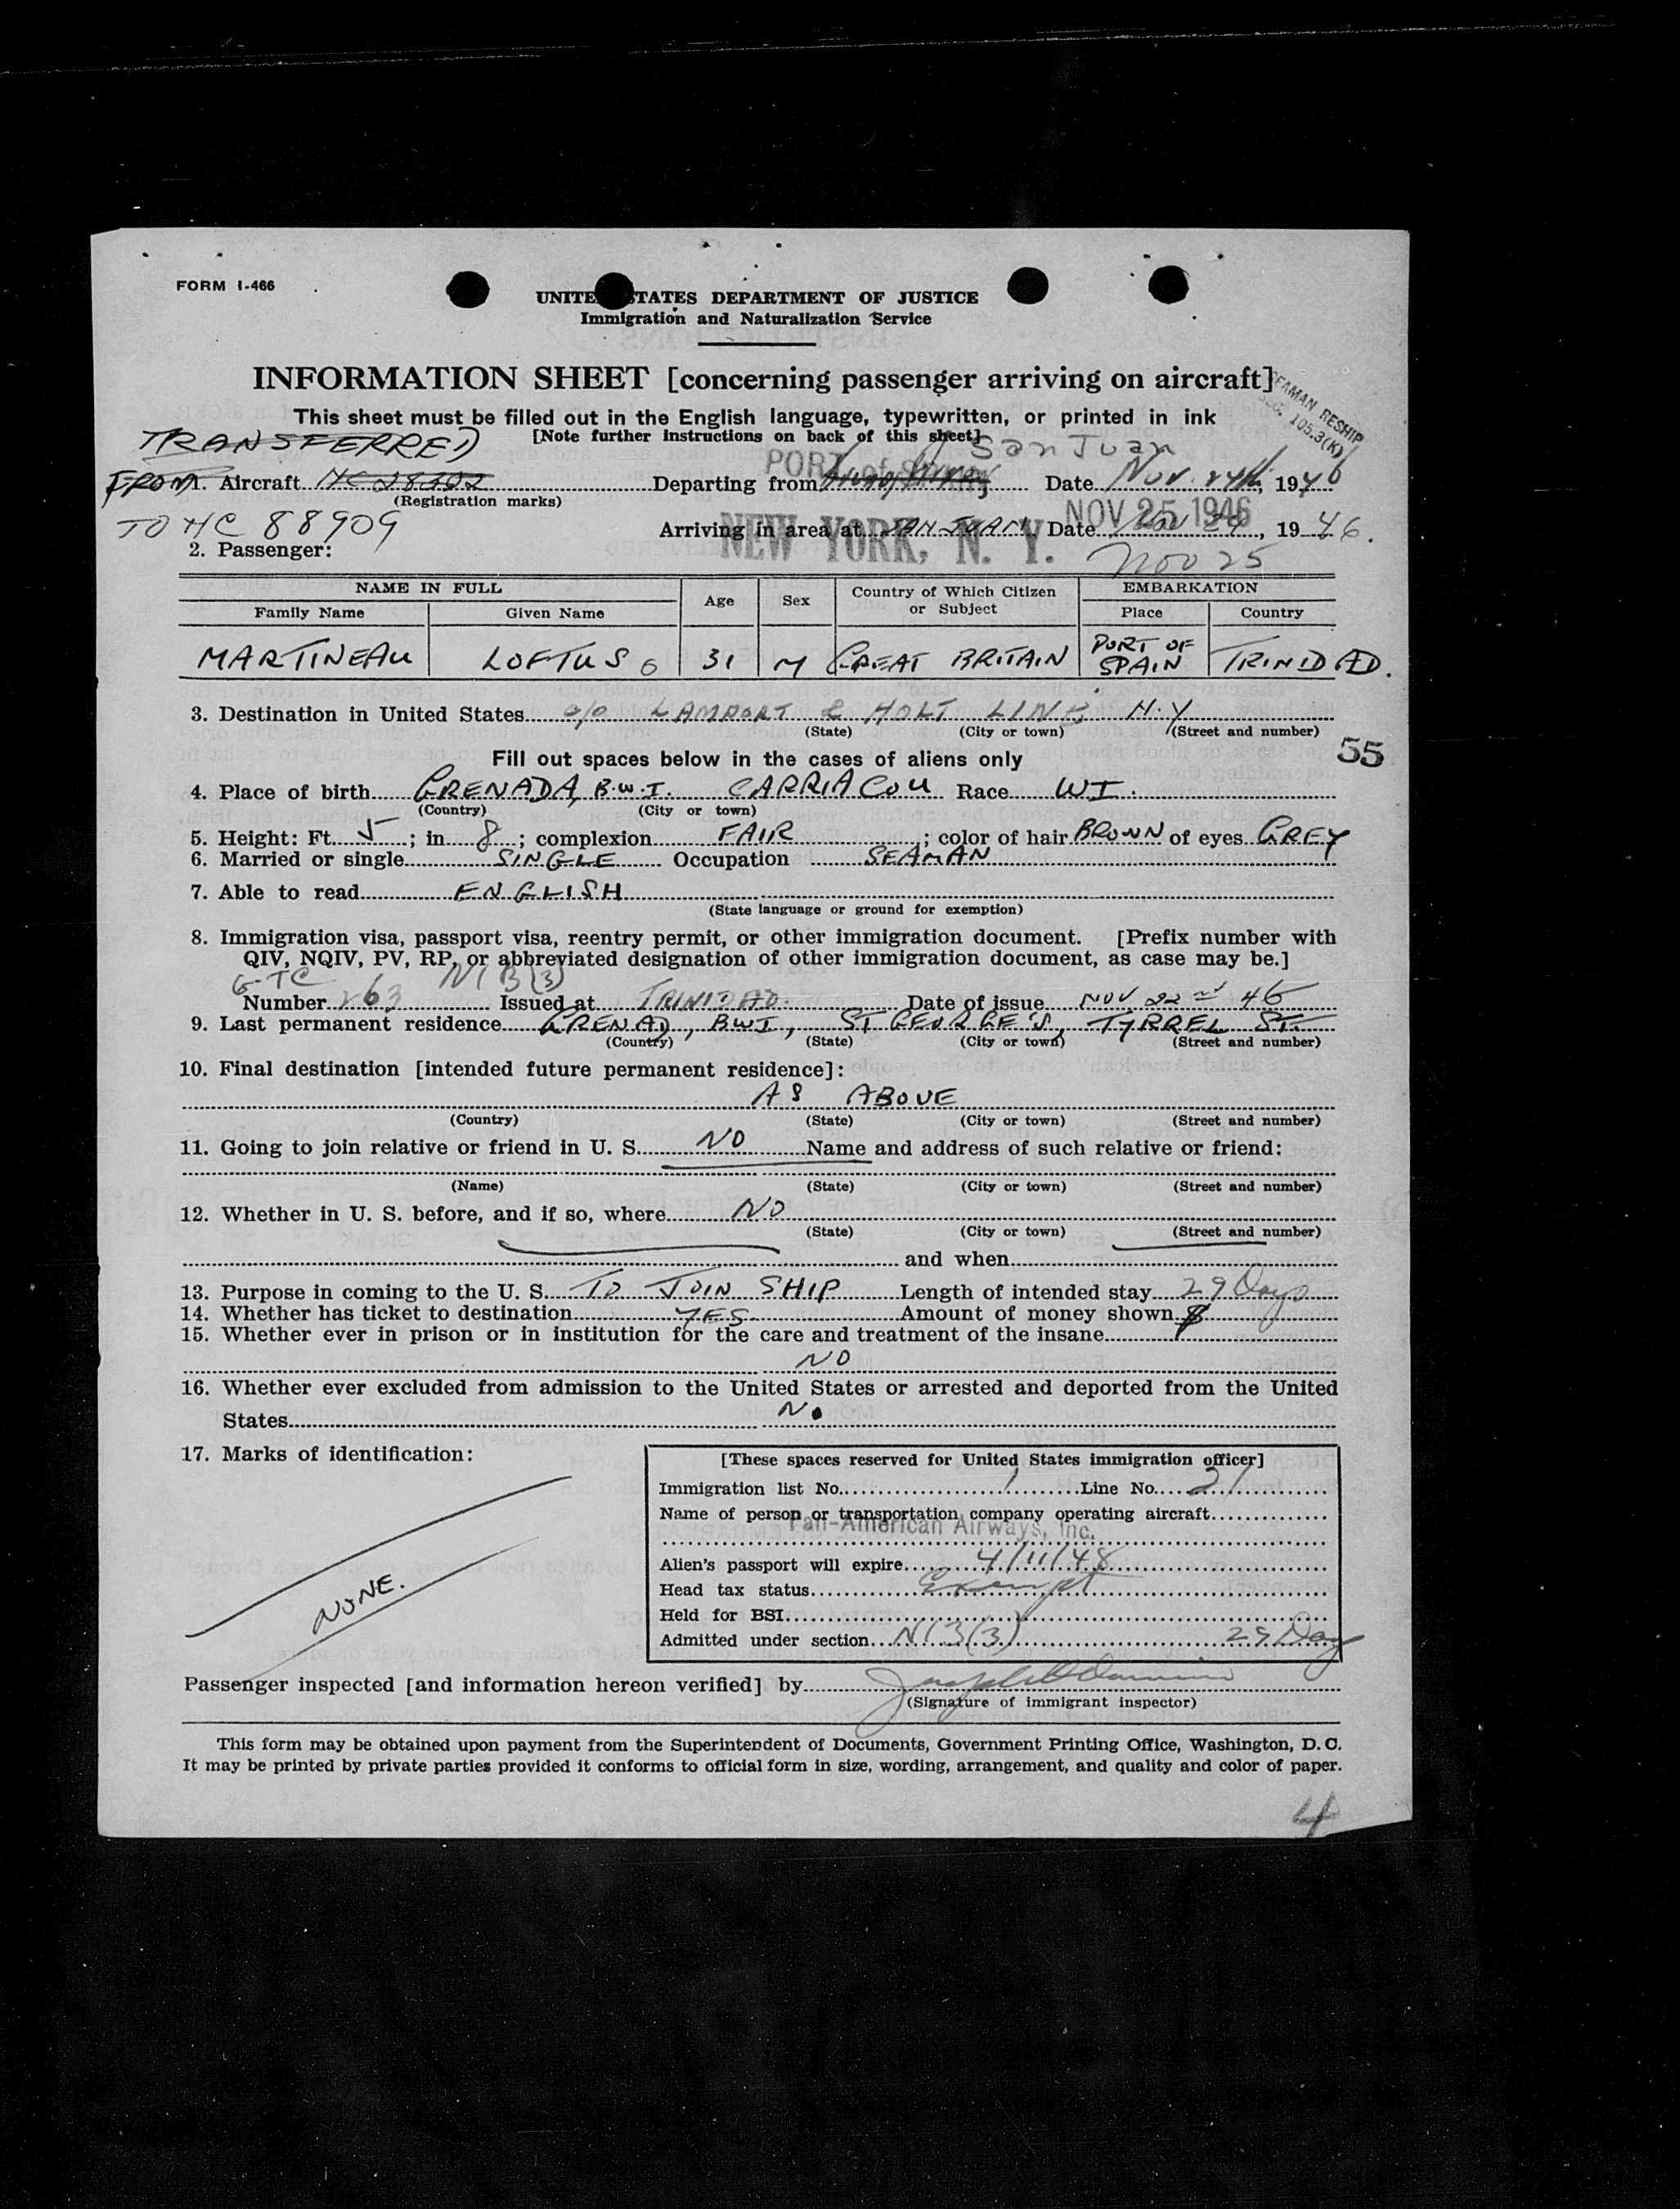 FORM I-466
UNITE STATES DEPARTMENT OF JUSTICE
Immigration and Naturalization Service
INFORMATION SHEET [concerning passenger arriving on aircraft]
SEAMAN RESHIP
SEC. 105.3(K)
This sheet must be filled out in the English language, typewritten, or printed in ink
TRANSFERRED [Note further instructions on back of this sheet] San Juan
FROM 1. Aircraft (Registration marks) Departing from PORT of Date Nov. 24th, 1946
TO NC 88909 Arriving in area at SAN JUAN NEW YORK, N. Y. Date NOV 25 1946 Nov 24, 1946.
2. Passenger: Nov 25
NAME IN FULL Age Sex Country of Which Citizen or Subject EMBARKATION
Family Name Given Name Place Country
MARTINEAU LOFTUS G 31 M GREAT BRITAIN PORT OF SPAIN TRINIDAD.
3. Destination in United States c/o LAMPORT & HOLT LINE N.Y
(State) (City or town) (Street and number)
Fill out spaces below in the cases of aliens only 55
4. Place of birth GRENADA, B.W.I. CARRIACOU Race WI.
(Country) (City or town)
5. Height: Ft. 5; in 8; complexion FAIR; color of hair BROWN of eyes GREY
6. Married or single SINGLE Occupation SEAMAN
7. Able to read ENGLISH
(State language or ground for exemption)
8. Immigration visa, passport visa, reentry permit, or other immigration document. [Prefix number with
QIV, NQIV, PV, RP, or abbreviated designation of other immigration document, as case may be.]
G-TC N(3(3)
Number 263 Issued at TRINIDAD. Date of issue NOV 22nd 46
9. Last permanent residence GRENAD, BWI, ST GEORGE'S, TYRREL ST.
(Country) (State) (City or town) (Street and number)
10. Final destination [intended future permanent residence]:
AS ABOVE
(Country) (State) (City or town) (Street and number)
11. Going to join relative or friend in U. S. NO Name and address of such relative or friend:
(Name) (State) (City or town) (Street and number)
12. Whether in U. S. before, and if so, where NO
(State) (City or town) (Street and number)
and when
13. Purpose in coming to the U. S. TO JOIN SHIP Length of intended stay 29 Days
14. Whether has ticket to destination YES. Amount of money shown $
15. Whether ever in prison or in institution for the care and treatment of the insane
NO
16. Whether ever excluded from admission to the United States or arrested and deported from the United
States No
17. Marks of identification:
NONE.
[These spaces reserved for United States immigration officer]
Immigration list No. 1 Line No. 21
Name of person or transportation company operating aircraft
Pan-American Airways, Inc.
Alien's passport will expire 4/11/48
Head tax status Exempt
Held for BSI
Admitted under section N(3(3) 29 Day
Passenger inspected [and information hereon verified] by
(Signature of immigrant inspector)
This form may be obtained upon payment from the Superintendent of Documents, Government Printing Office, Washington, D. C.
It may be printed by private parties provided it conforms to official form in size, wording, arrangement, and quality and color of paper.
4